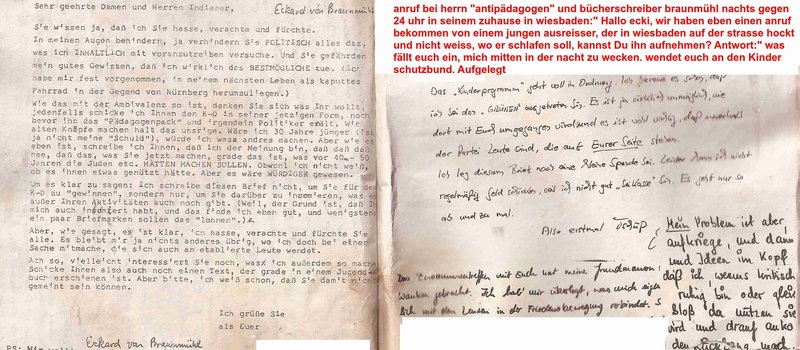 Sehr geehrte Damen und Herren Indianer,
Eckard von Braunmühl
Sie wissen ja, daß ich Sie hasse, verachte und fürchte.
In meinen Augen behindern, ja verhindern Sie POLITISCH alles das,
was ich INHALTLICH mit voranzutreiben versuche. Und Sie gefährden
mein gutes Gewissen, daß ich wirklich das BESTMÖGLICHE tue. (Ich
habe mir fest vorgenommen, in meinem nächsten Leben als kaputtes
Fahrrad in der Gegend von Nürnberg herumzuliegen.)
Wie das mit der Ambivalenz so ist, denken Sie sich was Ihr wollt,
jedenfalls schicke ich Ihnen den K-D in seiner jetzigen Form, noch
bevor ihn das "Pädagogenpack" und irgendein Politiker erhält. Wie
alten Knöpfe machen halt das unsrige. Wäre ich 30 Jahre jünger (ist
ja nicht meine "Schuld"), würde ich was andres machen. Aber wie es
eben ist, schreibe ich Ihnen, daß ich der Meinung bin, daß daß daß
nee, daß das, was Sie jetzt machen, grade das ist, was vor 40 - 50
Jahren die Juden etc. HÄTTEN MACHEN SOLLEN. Obwohl ich nicht weiß,
ob es ihnen etwas genützt hätte. Aber es wäre WÜRDIGER gewesen.
Um es klar zu sagen: Ich schreibe diesen Brief nicht, um Sie für den
K-D zu "gewinnen", sondern nur, um Sie darüber zu informieren, was es
außer Ihren Aktivitäten auch noch gibt. (Weil, der Grund ist, daß Ihr
mich auch informiert habt, und das finde ich eben gut, und wenigstens
ein paar Briefmarken sollen das "lohnen".)
Aber, wie gesagt, es ist klar, ich hasse, verachte und fürchte Sie
alle. Es bleibt mir ja nichts anderes übrig, wo ich doch bei einer
Sache mitmache, die sich auch an etablierte Leute wendet.
Ach so, vielleicht interessiert Sie noch, was ich außerdem so mache.
Schicke Ihnen also auch noch einen Text, der grade in einem Jugend-
buch erschienen ist. Aber bitte, ich weiß schon, daß Sie damit nicht
gemeint sein können.
Ich grüße Sie
als Euer
Eckard von Braunmühl
PS:
anruf bei herrn "antipädagogen" und bücherschreiber braunmühl nachts gegen
24 uhr in seinem zuhause in wiesbaden:" Hallo ecki, wir haben eben einen anruf
bekommen von einem jungen ausreisser, der in wiesbaden auf der strasse hockt
und nicht weiss, wo er schlafen soll, kannst Du ihn aufnehmen? Antwort:" was
fällt euch ein, mich mitten in der nacht zu wecken. wendet euch an den Kinder
schutzbund. Aufgelegt
Das "Kinderprogramm" geht voll in Ordnung. Ich bereue es sehr, daß
ich bei den "GRÜNEN" ausgetreten bin. Es ist ja wirklich unmöglich, wie
dort mit Euch umgegangen wird und es ist voll wichtig, daß innerhalb
der Partei Leute sind, die auf Eurer Seite stehen.
Ich leg diesem Brief noch eine kleine Spende bei. Leider kann ich nicht
regelmäßig Geld schicken, weil ich nicht gut "bei Kasse" bin. Es geht nur so
ab und zu mal.
Also erstmal Tschüß
Das Zusammentreffen mit Euch hat meine
wanken gebracht. Ich hab' mir überlegt, was mich eigent
lich mit den Leuten in der Friedensbewegung verbindet.
Mein Problem ist aber,
aufkriege, und dann
und Ideen im Kopf
daß ich, wenns kritisch
ruhig bin oder gleich
Bloß da nützen sie
wird und drauf anko
den Rückgang mach